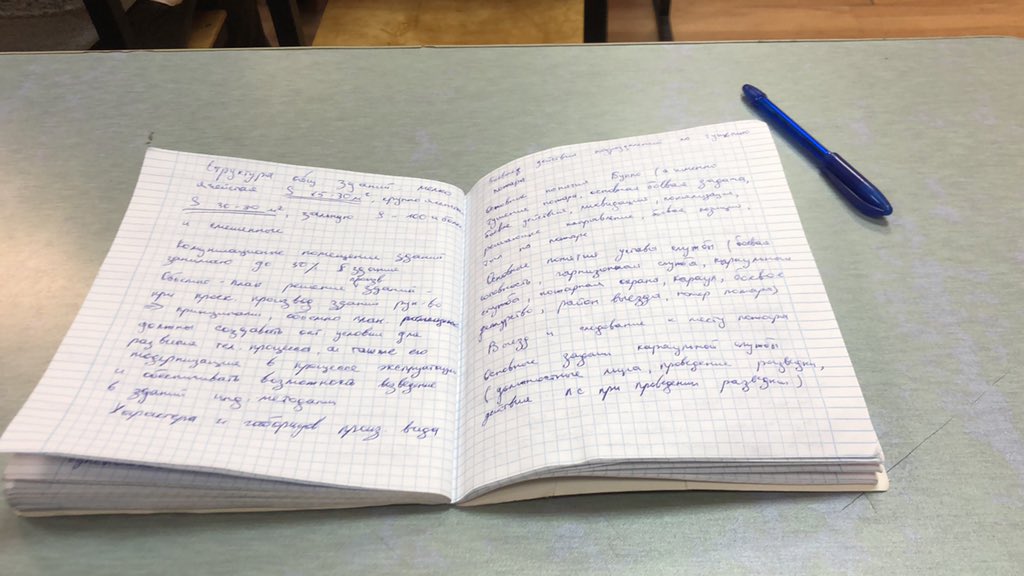 Структура общ зданий мелко
ячейская S 15-30 м², крупно ячеист
S 30-70 м², зальную S - 100 и более
и смешенное
Комуникационное помещение зданий
занимают до 30% S здания
Объемно-план решение зданий -
при проек. произвд зданий рук-во
принципами, объемно план. размещение
должны создавать опт условие для
развития тех. процесса, а также его
модернизацию в процессе эксплуатации
и обеспечивать возможность возведение
в зданий инд. методами
Характера и габоритов произ вида
Боевые действия подразделений по тушению
пожара
Основные понятия Бупо (а именно
тушение пожара, основная боевая задача,
боевое участие, ликвидация, локализация,
решающее направление, боевая позиция,
на пожаре
Основное понятия устава службы (боевая
готовность, гарнизонная служба, караульная
служба, пожарная охрана, караул, боевое
дежурство, район выезда, номер пожара)
Выезд и следование к месту пожара
Основные задачи караульной службы
(должностные лица, проведение разведки,
действия ЛС при проведении разведки)